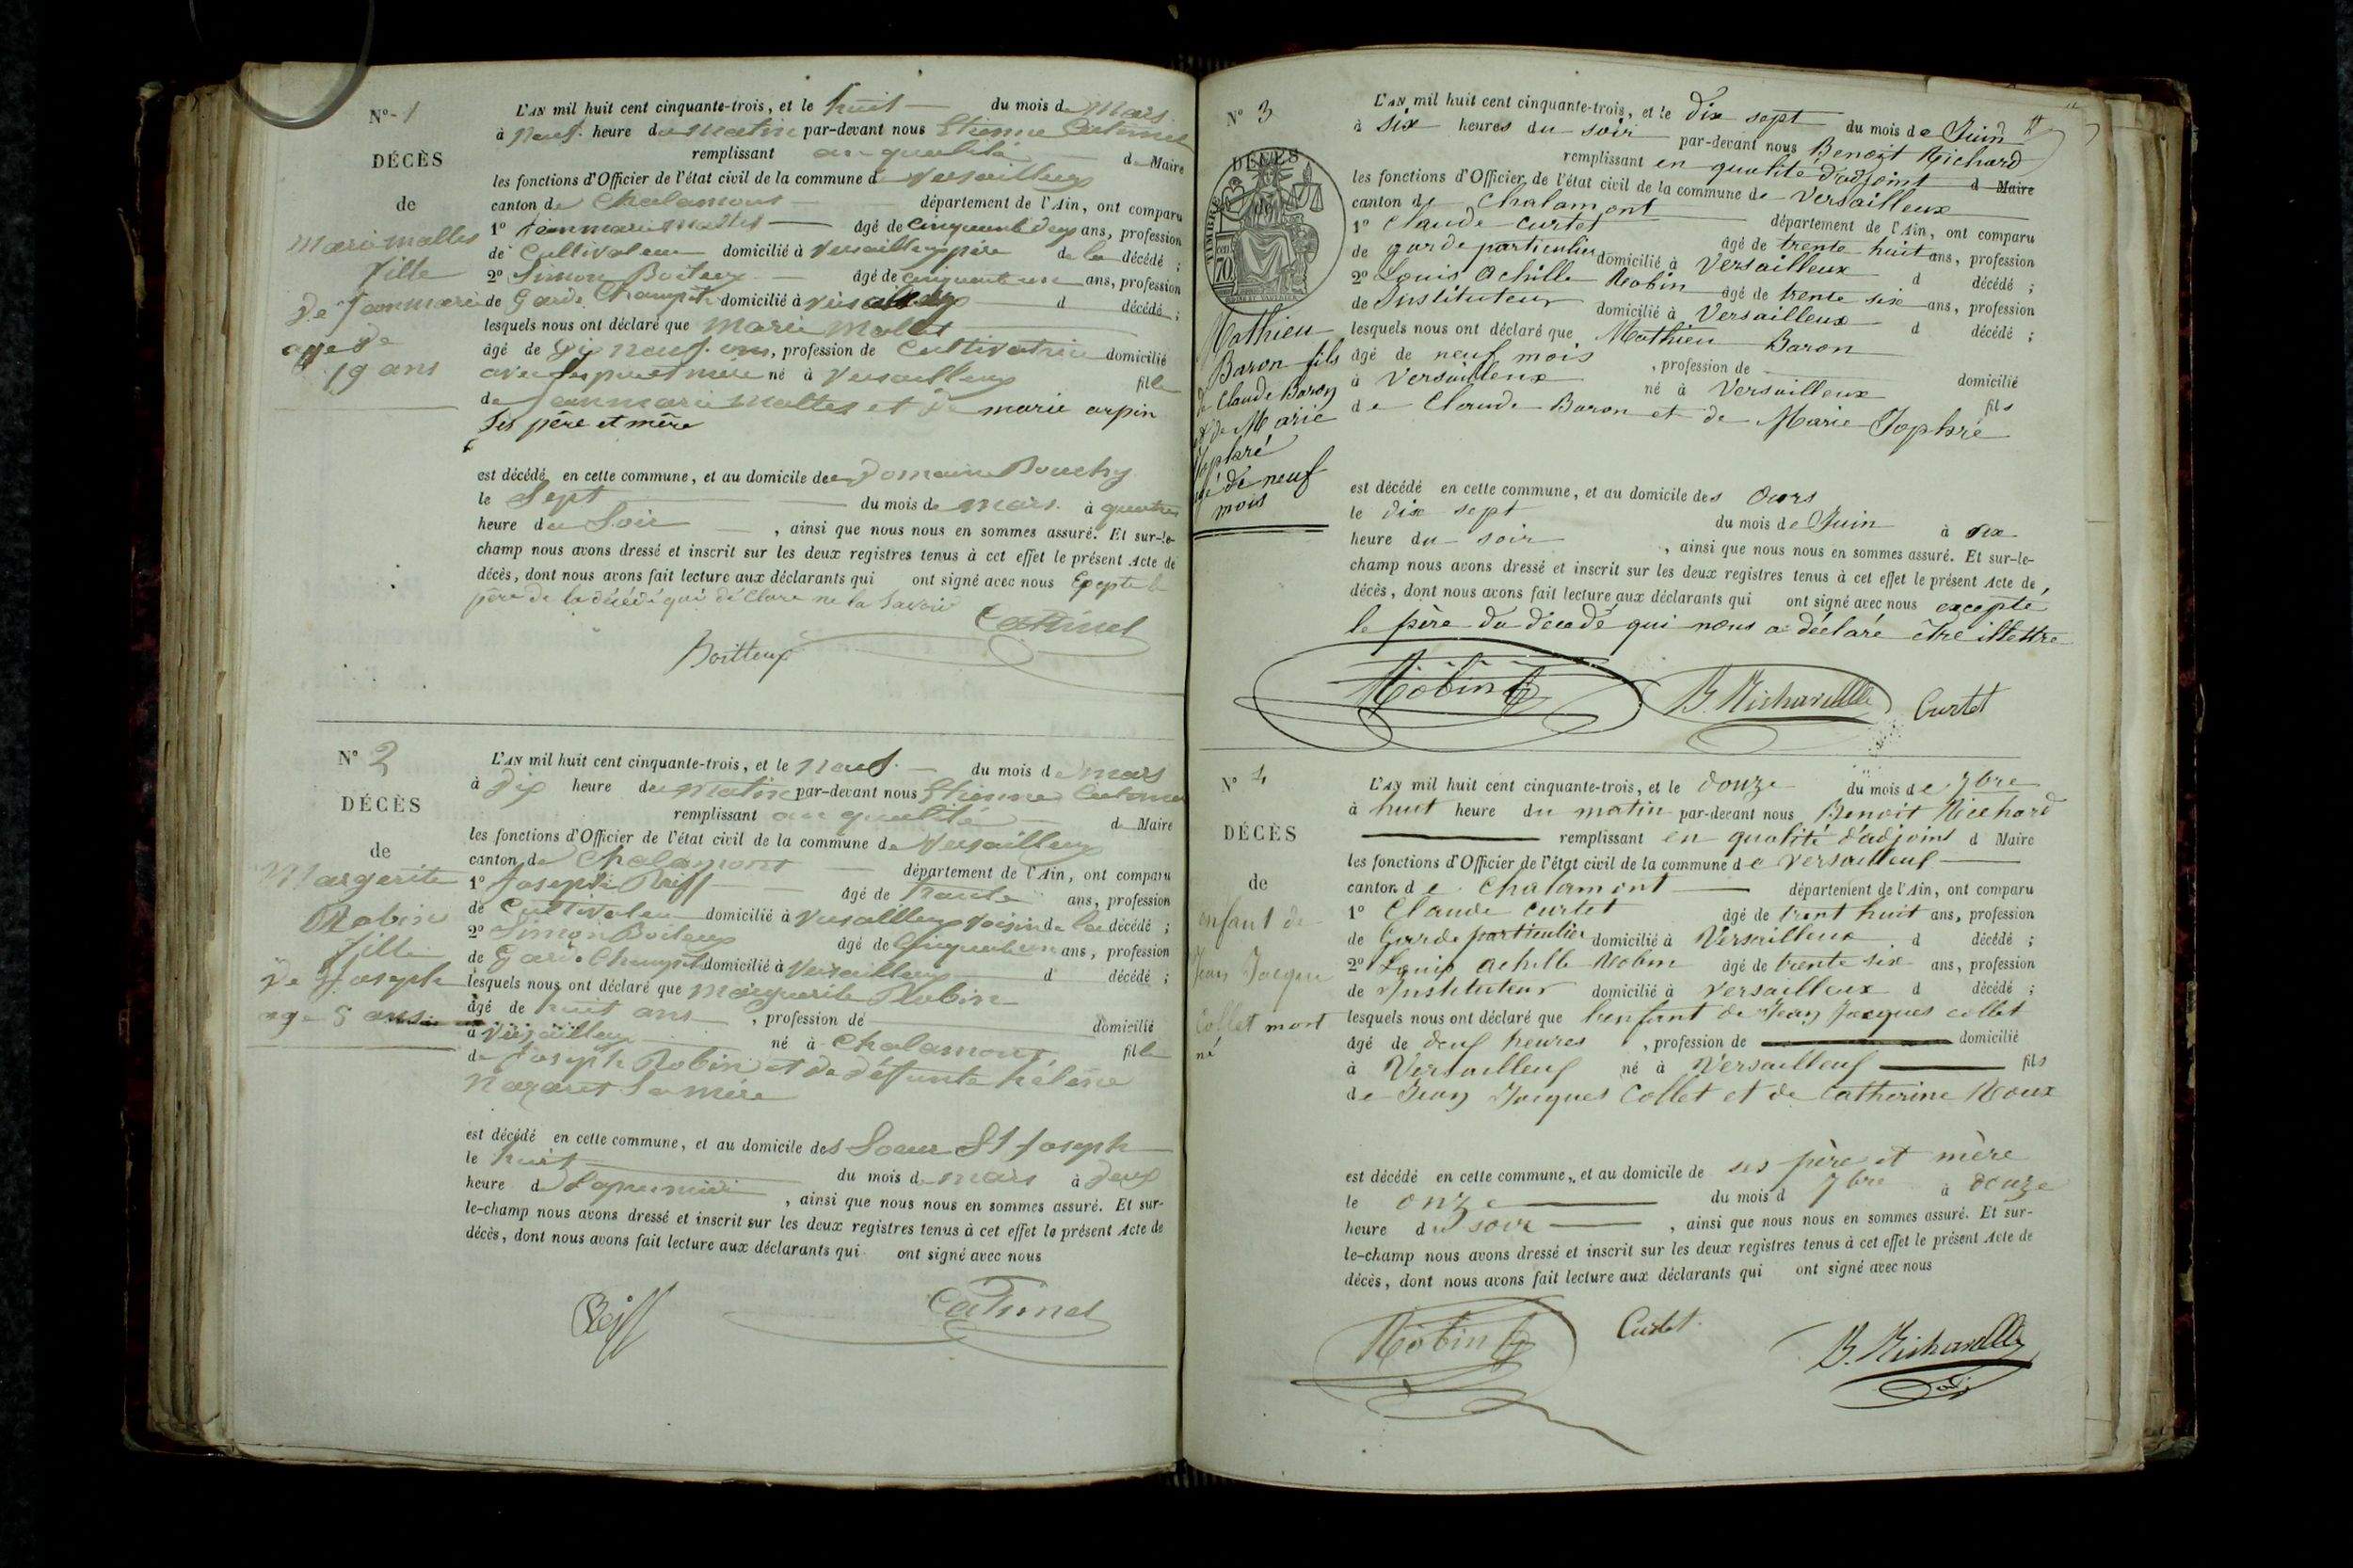 N° 1
DÉCÈS
de
Marie Mattes
fille
de Janmarie
age de
19 ans
L'AN mil huit cent cinquante-trois, et le huit du mois de Mars
à neuf heure du matin par-devant nous Etienne Catimel
remplissant en qualité de Maire
les fonctions d'Officier de l'état civil de la commune de Versailleux
canton de Chalamont département de l'Ain, ont comparu
1° Janmarie Mattes âgé de cinquante deux ans, profession
de Cultivateur domicilié à Versailleux père de la décédé ;
2° Simon Boiteux âgé de cinquante un ans, profession
de Garde Champetre domicilié à Versailleux d décédé ;
lesquels nous ont déclaré que Marie Mattes
âgé de dix neuf ans, profession de Cultivatrice domicilié
avec ses père et mère né à Versailleux fille
de Janmarie Mattes et de marie arpin
Ses père et mère
est décédé en cette commune, et au domicile de Domaine Bouchy
le Sept du mois de mars à quatre
heure du Soir, ainsi que nous nous en sommes assuré. Et sur-le-
champ nous avons dressé et inscrit sur les deux registres tenus à cet effet le présent Acte de
décès, dont nous avons fait lecture aux déclarants qui ont signé avec nous Exepte le
père de la décédé qui déclare ne la Savoir
Catimel
Boitteux
N° 2
DÉCÈS
de
Margerite
Robin
fille
de Joseph
age 8 ans
L'AN mil huit cent cinquante-trois, et le neuf du mois de mars
à Dix heure du Matin par-devant nous Etienne Catimel
remplissant en qualité de Maire
les fonctions d'Officier de l'état civil de la commune de Versailleux
canton de Chalamont département de l'Ain, ont comparu
1° Joseph Reiff âgé de trente ans, profession
de Cultivateur domicilié à Versailleux voisin de la décédé ;
2° Simon Boiteux âgé de Cinquante un ans, profession
de Garde Champetre domicilié à Versailleux d décédé ;
lesquels nous ont déclaré que Marguerite Robin
âgé de huit ans, profession de domicilié
à Versailleux né à Chalamont fille
de Joseph Robin et de défunte hélène
Nazaret Sa mère
est décédé en cette commune, et au domicile des Soeur St Joseph
le huit du mois de mars à Deux
heure d Lapremidi, ainsi que nous nous en sommes assuré. Et sur-
le-champ nous avons dressé et inscrit sur les deux registres tenus à cet effet le présent Acte de
décès, dont nous avons fait lecture aux déclarants qui ont signé avec nous
Reiff
Catimel
N° 3
DÉCÈS
de
TIMBRE
70
Mathieu
Baron fils
de Claude Baron
et de Marie
Jophré
agé de neuf
mois
L'AN mil huit cent cinquante-trois, et le dix sept du mois de Juin
à six heures du soir par-devant nous Benoit Richard
remplissant en qualité d'adjoint d Maire
les fonctions d'Officier de l'état civil de la commune de Versailleux
canton de Chalamont département de l'Ain, ont comparu
1° Claude Curtet âgé de trente huit ans, profession
de garde particulier domicilié à Versailleux d décédé ;
2° Louis Achille Robin âgé de trente six ans, profession
de Instituteur domicilié à Versailleux d décédé ;
lesquels nous ont déclaré que Mathieu Baron
âgé de neuf mois, profession de domicilié
à Versailleux né à Versailleux fils
de Claude Baron et de Marie Jophré
est décédé en cette commune, et au domicile des Ours
le dix sept du mois de Juin à six
heure du soir, ainsi que nous nous en sommes assuré. Et sur-le-
champ nous avons dressé et inscrit sur les deux registres tenus à cet effet le présent Acte de
décès, dont nous avons fait lecture aux déclarants qui ont signé avec nous excepté
le père du décédé qui nous a déclaré être illettre
Robin
B. Richard
Curtet
N° 4
DÉCÈS
de
enfant de
Jean Jacque
Collet mort
né
L'AN mil huit cent cinquante-trois, et le douze du mois de 7bre
à huit heure du matin par-devant nous Benoit Richard
remplissant en qualité d'adjoint d Maire
les fonctions d'Officier de l'état civil de la commune de Versailleux
canton de Chalamont département de l'Ain, ont comparu
1° Claude Curtet âgé de trent huit ans, profession
de Garde particulier domicilié à Versailleux d décédé ;
2° Louis Achille Robin âgé de trente six ans, profession
de Instituteur domicilié à Versailleux d décédé ;
lesquels nous ont déclaré que l'enfant de Jean Jacques Collet
âgé de deux heures, profession de domicilié
à Versailleux né à Versailleux fils
de Jean Jacques Collet et de Catherine Roux
est décédé en cette commune, et au domicile de ses père et mère
le onze du mois d 7bre à douze
heure du soir, ainsi que nous nous en sommes assuré. Et sur-
le-champ nous avons dressé et inscrit sur les deux registres tenus à cet effet le présent Acte de
décès, dont nous avons fait lecture aux déclarants qui ont signé avec nous
Robin
Curtet
B. Richard
adj